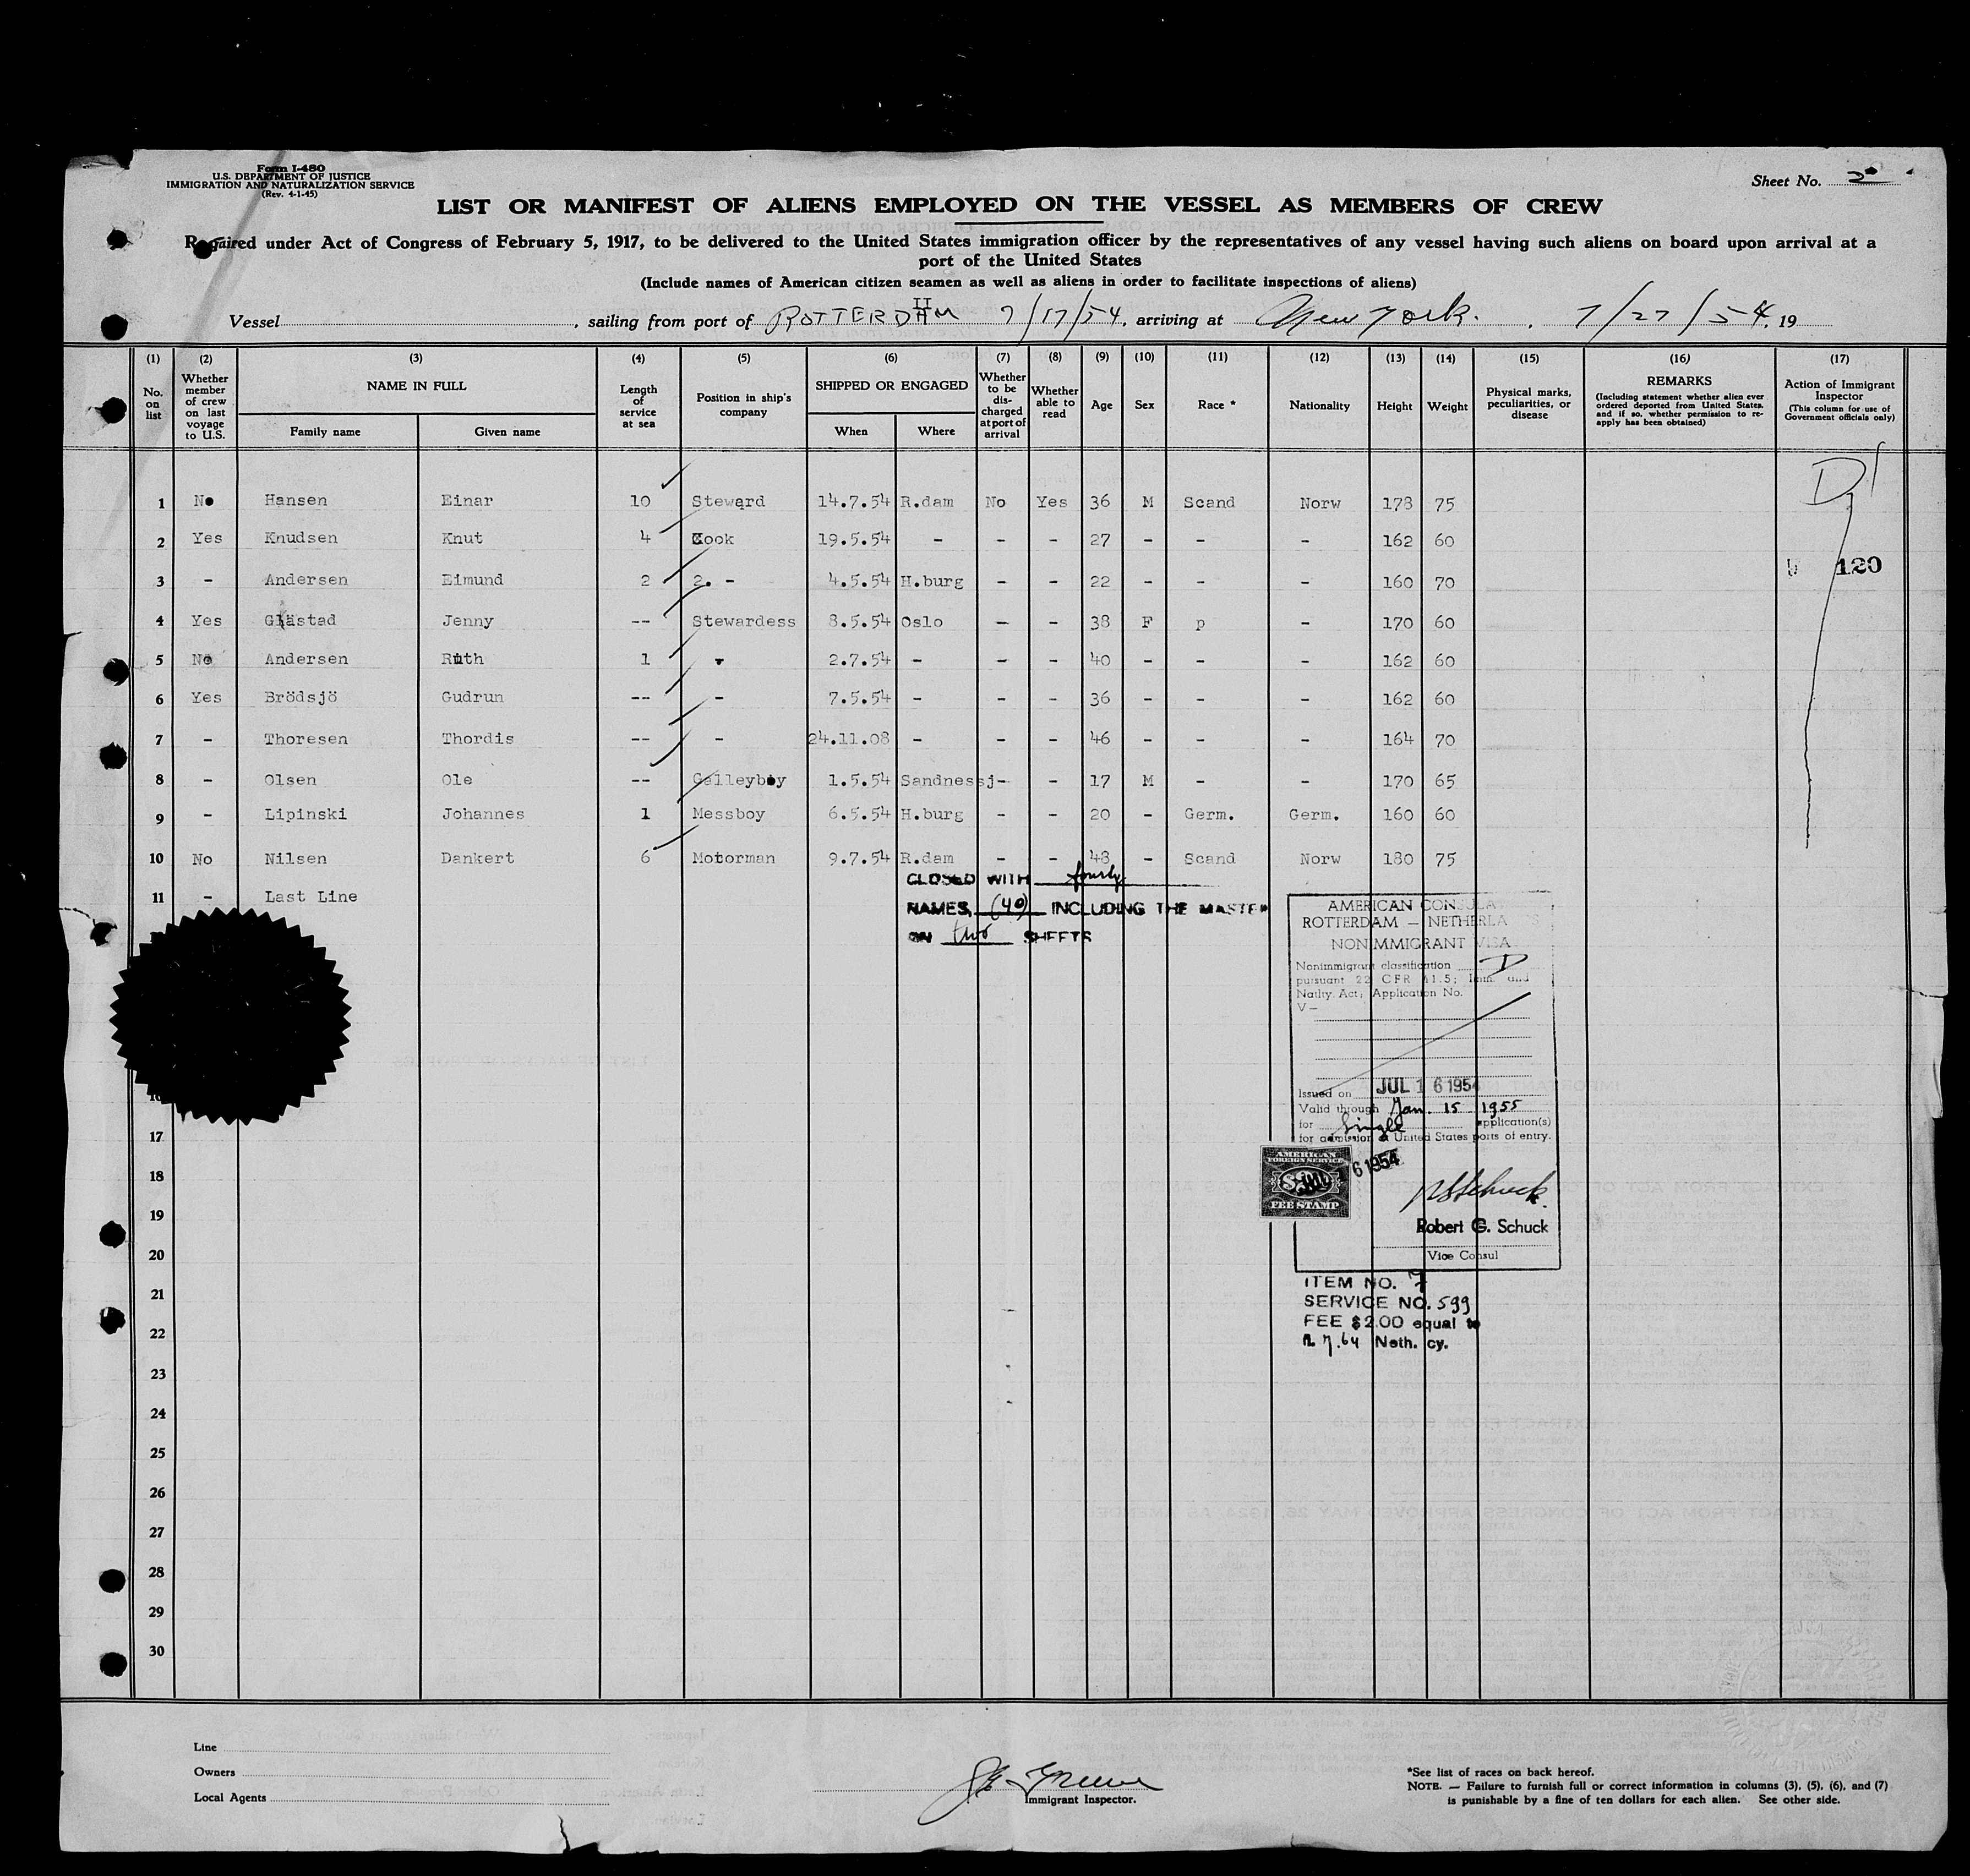 Form I-480
U.S. DEPARTMENT OF JUSTICE
IMMIGRATION AND NATURALIZATION SERVICE
(Rev. 4-1-45)
Sheet No. 2
LIST OR MANIFEST OF ALIENS EMPLOYED ON THE VESSEL AS MEMBERS OF CREW
Required under Act of Congress of February 5, 1917, to be delivered to the United States immigration officer by the representatives of any vessel having such aliens on board upon arrival at a
port of the United States
(Include names of American citizen seamen as well as aliens in order to facilitate inspections of aliens)
II
Vessel , sailing from port of ROTTERDAM 7/17/54, arriving at New York. , 7/27/54, 19
(1) (2) (3) (4) (5) (6) (7) (8) (9) (10) (11) (12) (13) (14) (15) (16) (17)
No. on list
Whether member of crew on last voyage to U.S.
NAME IN FULL
Family name Given name
Length of service at sea
Position in ship's company
SHIPPED OR ENGAGED
When Where
Whether to be discharged at port of arrival
Whether able to read
Age Sex Race * Nationality Height Weight
Physical marks, peculiarities, or disease
REMARKS
(Including statement whether alien ever ordered deported from United States, and if so, whether permission to re-apply has been obtained)
Action of Immigrant Inspector
(This column for use of Government officials only)
D
1 No Hansen Einar 10 Steward 14.7.54 R.dam No Yes 36 M Scand Norw 178 75
2 Yes Knudsen Knut 4 Cook 19.5.54 - - - 27 - - - 162 60
3 - Andersen Eimund 2 2. - 4.5.54 H.burg - - 22 - - - 160 70
120
4 Yes Glästad Jenny -- Stewardess 8.5.54 Oslo - - 38 F p - 170 60
5 No Andersen Ruth 1 - 2.7.54 - - - 40 - - - 162 60
6 Yes Brödsjö Gudrun -- - 7.5.54 - - - 36 - - - 162 60
7 - Thoresen Thordis -- - 24.11.08 - - - 46 - - - 164 70
8 - Olsen Ole -- Galleyboy 1.5.54 Sandnessj- - 17 M - - 170 65
9 - Lipinski Johannes 1 Messboy 6.5.54 H.burg - - 20 - Germ. Germ. 160 60
10 No Nilsen Dankert 6 Motorman 9.7.54 R.dam - - 48 - Scand Norw 180 75
11 - Last Line
CLOSED WITH fourty
NAMES, (40) INCLUDING THE MASTER
ON two SHEETS
AMERICAN CONSULA
ROTTERDAM — NETHERLA S
NONIMMIGRANT VISA
Nonimmigrant classification D
pursuant 22 CFR 41.5; Imm. and
Natly. Act; Application No.
V—
Issued on JUL 16 1954
Valid through Jan. 15 1955
for Single application(s)
for admission at United States ports of entry.
AMERICAN
FOREIGN SERVICE
FEE STAMP
6 1954
Robert G. Schuck
Vice Consul
ITEM NO. 7
SERVICE NO. 599
FEE $2.00 equal to
7.64 Neth. cy.
16
17
18
19
20
21
22
23
24
25
26
27
28
29
30
Line
Owners
Local Agents
Immigrant Inspector.
*See list of races on back hereof.
NOTE. — Failure to furnish full or correct information in columns (3), (5), (6), and (7)
is punishable by a fine of ten dollars for each alien. See other side.